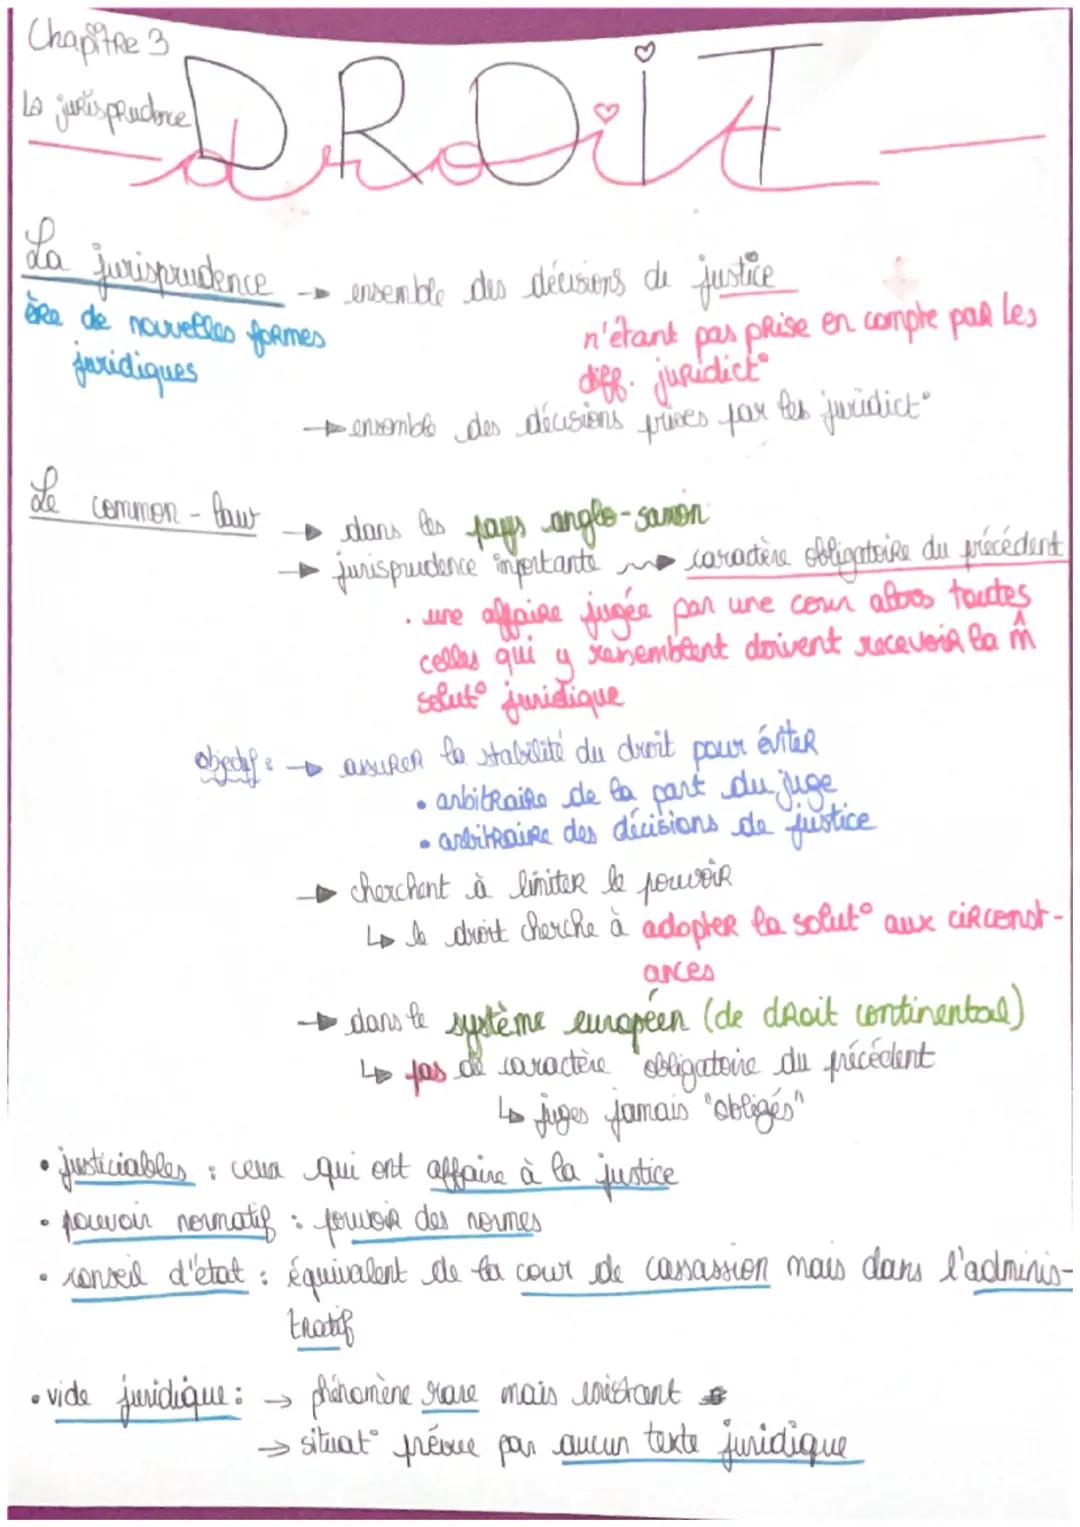 Chapitre 3
La jurisprudence
DROIT
droit
La jurisprudence → ensemble des décisions de justice
ère de nouvelles formes juridiques
n'étant pas prise en compte par les
diff. juridict°
→ ensemble des décisions prises par les juridict°
Le common-law → dans les pays anglo-saxon
→ jurisprudence importante → caractère obligatoire du précédent
. une affaire jugée par une cour alors toutes
celles qui y ressemblent doivent recevoir la m̂
solut° juridique
objectif : → assurer la stabilité du droit pour éviter
• arbitraire de la part du juge
• arbitraire des décisions de justice
→ cherchent à limiter le pouvoir
↳ le droit cherche à adopter la solut° aux circonst-
ances
→ dans le système européen (de droit continental)
↳ pas de caractère obligatoire du précédent
↳ juges jamais "obligés"
• justiciables : ceux qui ont affaire à la justice
• pouvoir normatif : pouvoir des normes
• conseil d'état : équivalent de la cour de cassassion mais dans l'adminis-
tratif
• vide juridique : → phénomène rare mais existant
→ situat° prévue par aucun texte juridique